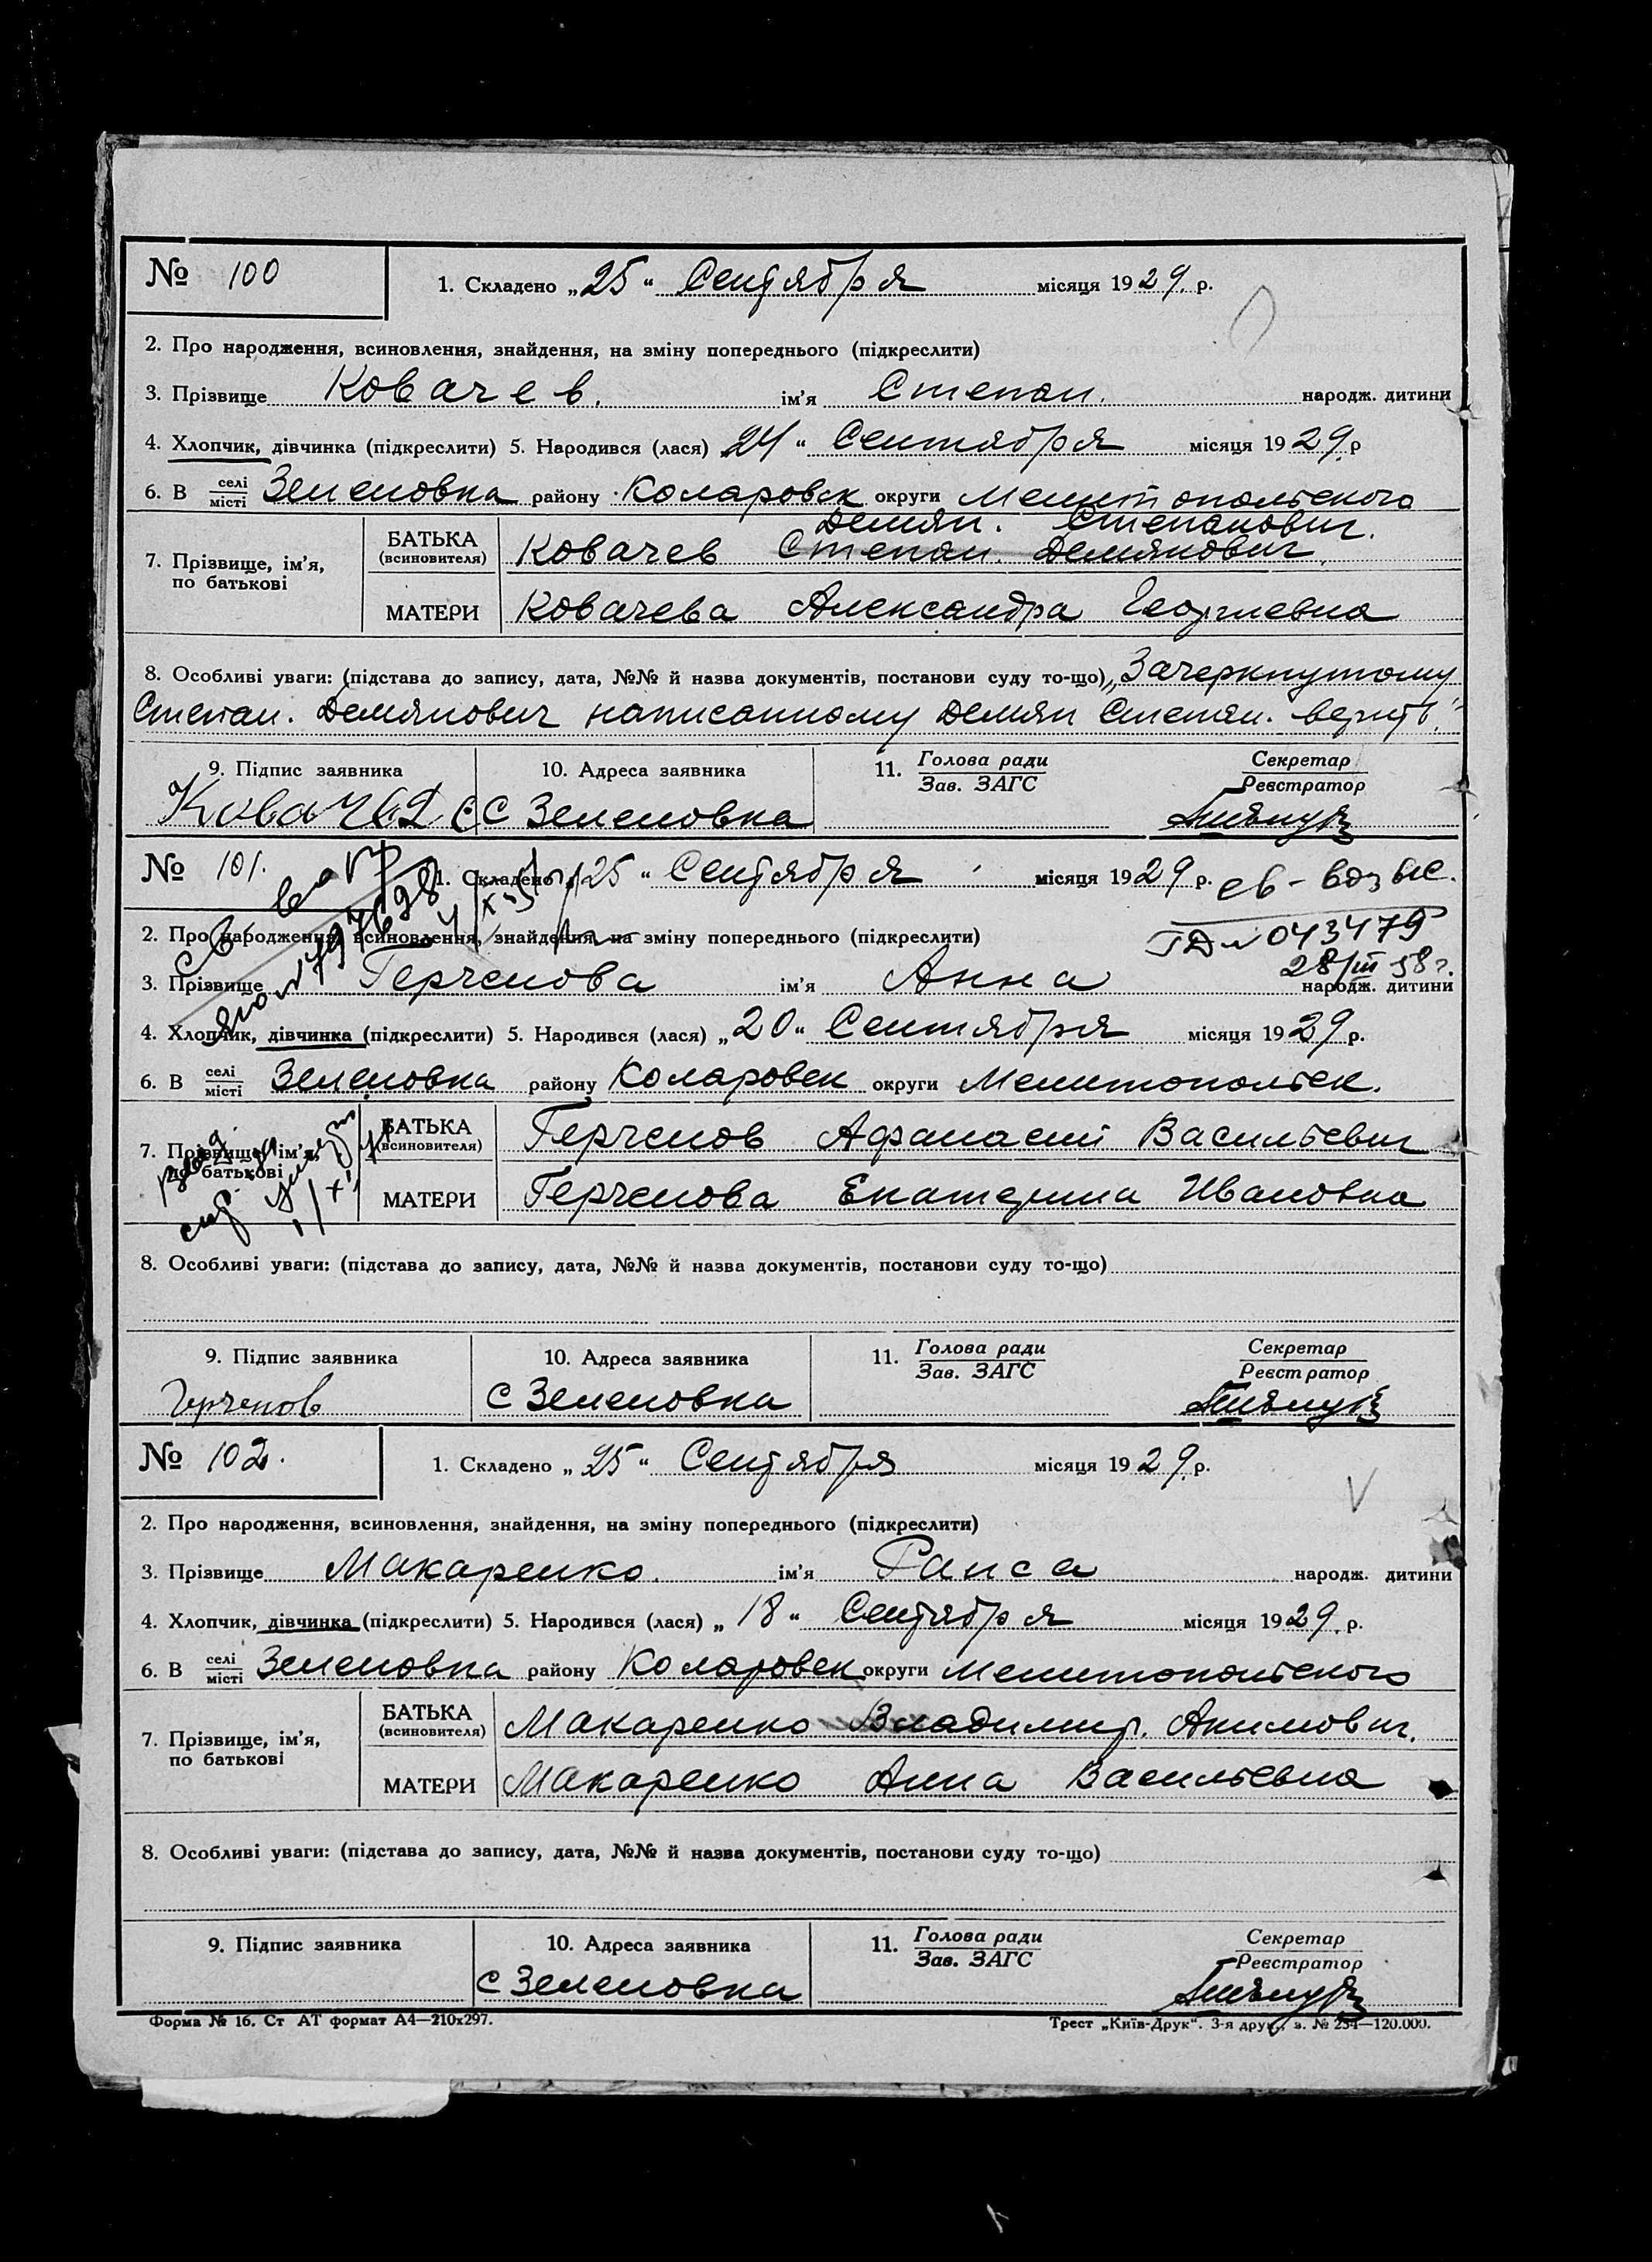 № 100
1. Складено „25“ Сентября місяця 1929. р.
2. Про народження, всиновлення, знайдення, на зміну попереднього (підкреслити)
3. Прізвище Ковачев. ім'я Степан. народж. дитини
4. Хлопчик, дівчинка (підкреслити) 5. Народився (лася) 24“ Сентября місяця 1929. р
6. В селі/місті Зеленовка району Коларовск округи Мелитопольского
Демян. Степанович.
7. Прізвище, ім'я, по батькові БАТЬКА (всиновителя) Ковачев Степан. Демянович
МАТЕРИ Ковачева Александра Георгиевна
8. Особливі уваги: (підстава до запису, дата, №№ й назва документів, постанови суду то-що) „Зачеркнутому
Степан. Демянович написанному Демян Степан. верить“
9. Підпис заявника 10. Адреса заявника 11. Голова ради/Зав. ЗАГС Секретар/Реєстратор
с Зеленовка
№ 101.
1. Складено „25“ Сентября місяця 1929 р.
св-
ГД № 043479
28/III 58 г.
2. Про народження, всиновлення, знайдення на зміну попереднього (підкреслити)
3. Прізвище Герченова ім'я Анна народж. дитини
4. Хлопчик, дівчинка (підкреслити) 5. Народився (лася) „20“ Сентября місяця 1929 р.
6. В селі/місті Зеленовка району Коларовск округи Мелитопольск.
7. Прізвище, ім'я, по батькові БАТЬКА (всиновителя) Герченов Афанасий Васильевич
МАТЕРИ Герченова Екатерина Ивановна
8. Особливі уваги: (підстава до запису, дата, №№ й назва документів, постанови суду то-що)
9. Підпис заявника 10. Адреса заявника 11. Голова ради/Зав. ЗАГС Секретар/Реєстратор
Герченов с Зеленовка
№ 102.
1. Складено „25“ Сентября місяця 1929. р.
2. Про народження, всиновлення, знайдення, на зміну попереднього (підкреслити)
3. Прізвище Макаренко. ім'я Раиса народж. дитини
4. Хлопчик, дівчинка (підкреслити) 5. Народився (лася) „18“ Сентября місяця 1929. р.
6. В селі/місті Зеленовка району Коларовск округи Мелитопольского
7. Прізвище, ім'я, по батькові БАТЬКА (всиновителя) Макаренко Владимир. Акимович.
МАТЕРИ Макаренко Анна Васильевна
8. Особливі уваги: (підстава до запису, дата, №№ й назва документів, постанови суду то-що)
9. Підпис заявника 10. Адреса заявника 11. Голова ради/Зав. ЗАГС Секретар/Реєстратор
с Зеленовка
Форма № 16. Ст АТ формат А4—210х297. Трест „Київ-Друк“. 3-я друк., з. № 254—120.000.